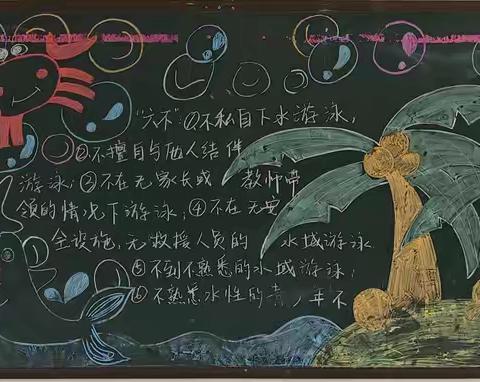 "六不"①不私自下水游泳，
②不擅自与他人结伴
游泳；③不在无家长或 教师带
领的情况下游泳；④不在无安
全设施，无救援人员的 水域游泳
⑤不到不熟悉的水域游泳；
⑥不熟悉水性的青少年不